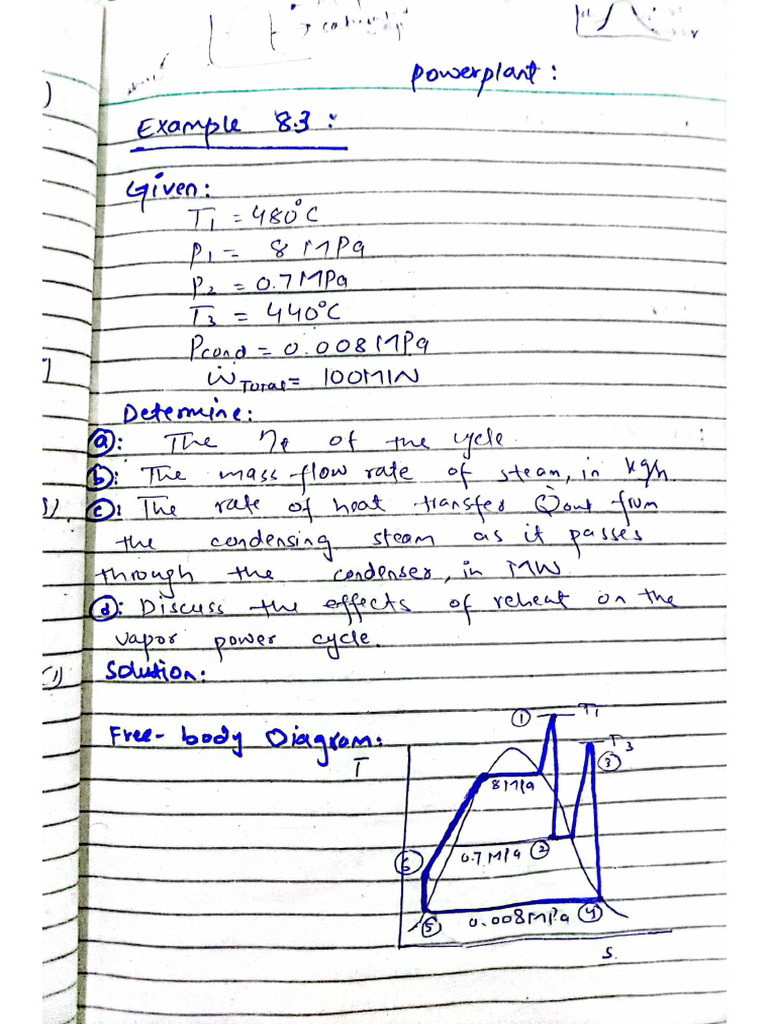 powerplant:
Example 8.3:
Given:
T₁ = 480°C
P₁ = 8 MPa
P₂ = 0.7MPa
T₃ = 440°C
Pcond = 0.008MPa
Ẇ Total = 100MW
Determine:
ⓐ: The ηt of the cycle
ⓑ: The mass flow rate of steam, in kg/h
ⓒ: The rate of heat transfer Q̇out from
the condensing steam as it passes
through the condenser, in MW
ⓓ: Discuss the effects of reheat on the
vapor power cycle.
Solution:
Free-body Diagram:
T
① T₁
T₃
③
8MPa
⑥
0.7MPa ②
⑤ 0.008MPa ④
S